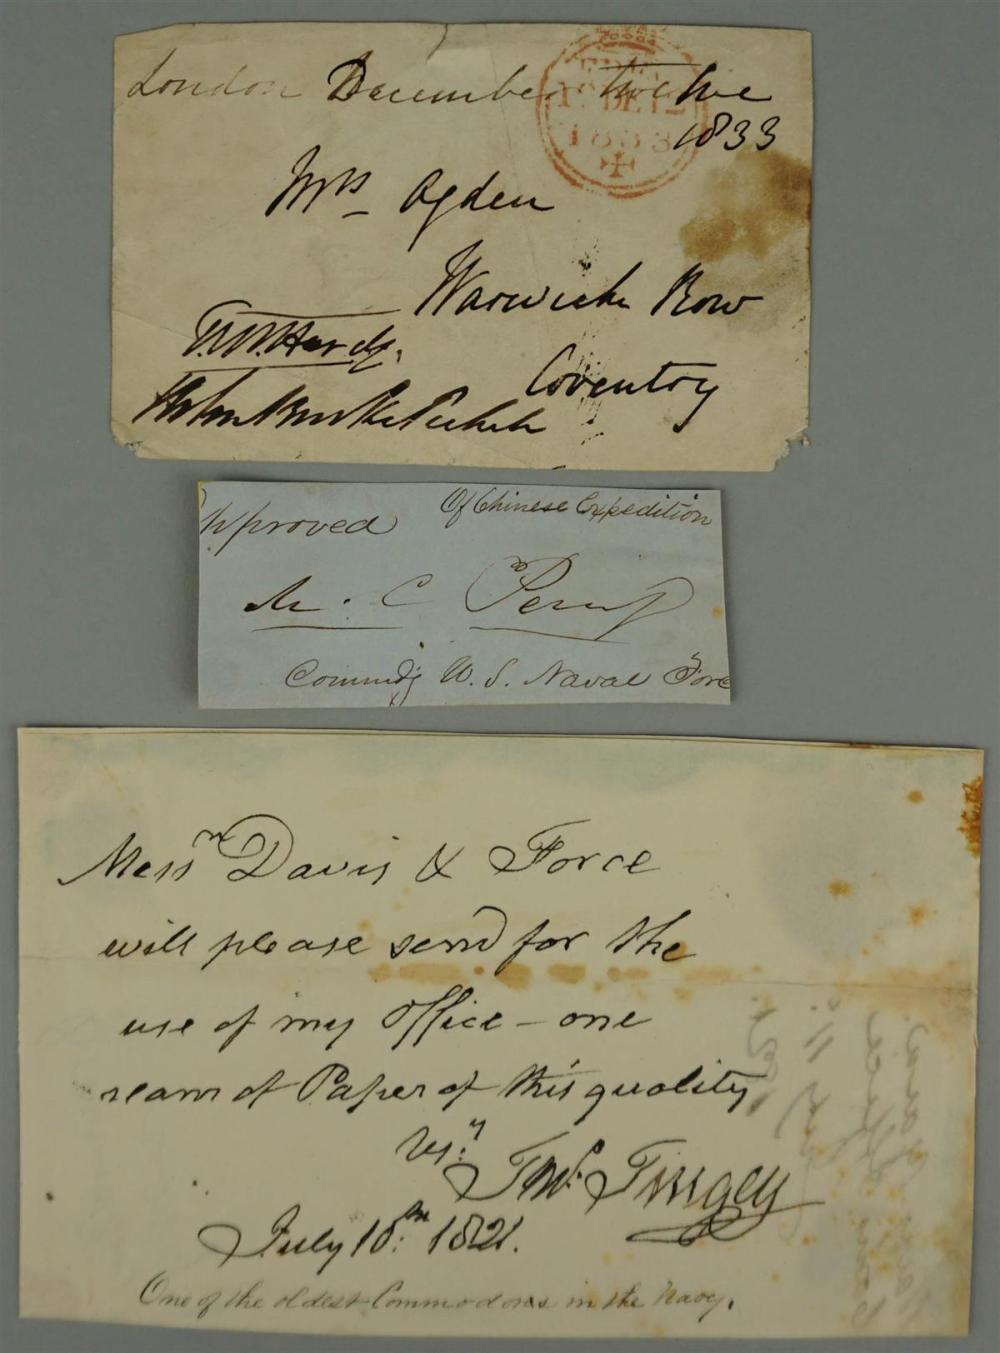 London December twelve
1833
FREE
12 DE 12
1833
Mrs Ogden
Warwick Row
Coventry
T. M. Hardy.
Approved
Of Chinese Expedition
M. C Perry
Commdg U. S. Naval Force
Messrs Davis & Force
will please send for the
use of my Office - one
ream of Paper of this quality
Thos. Tingey
July 18th 1821.
One of the oldest Commodores in the Navy.